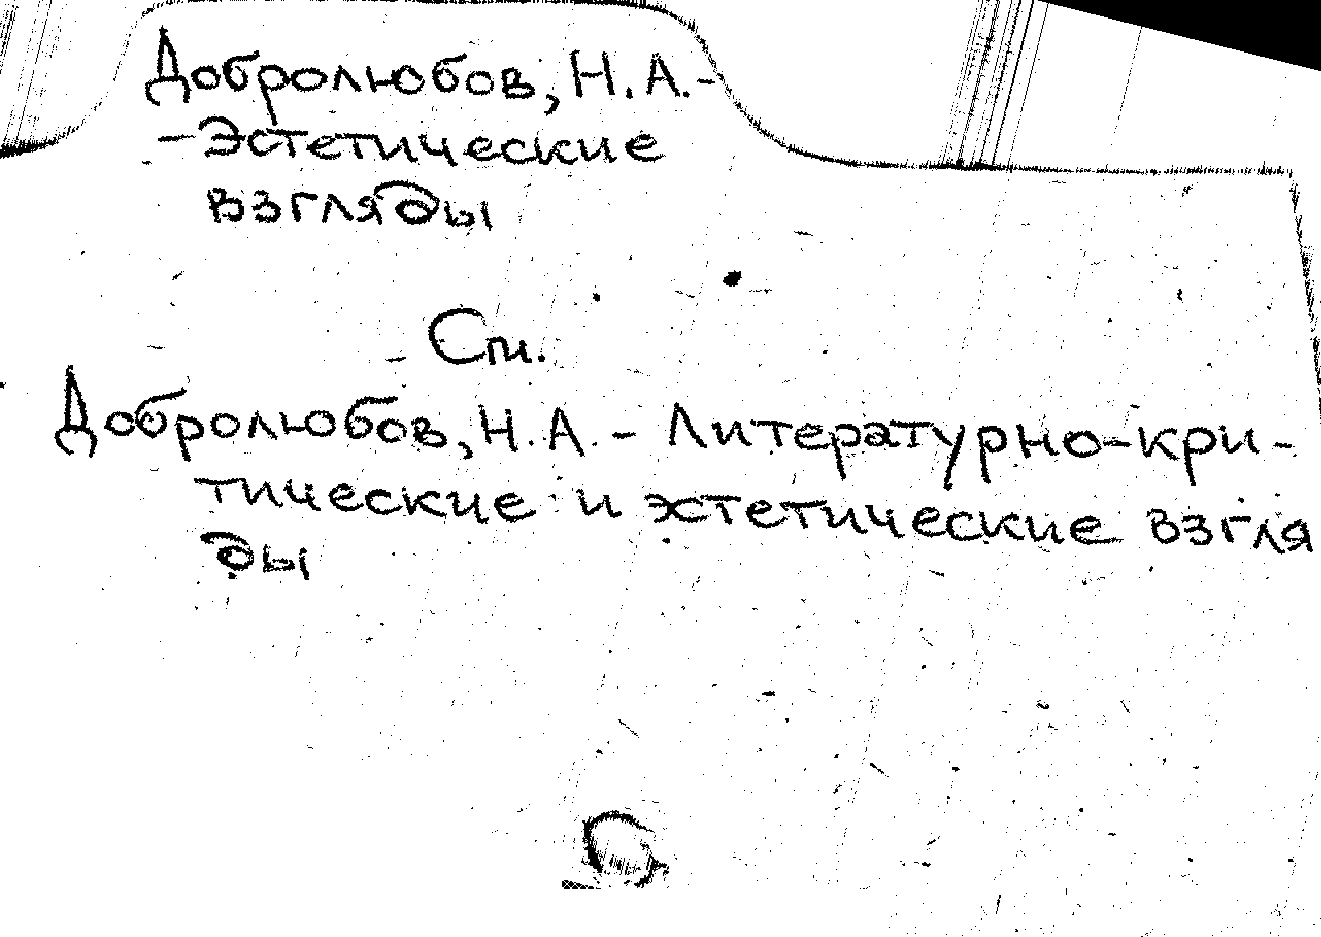 Добролюбов, Н.А.-
-Эстетические
взгляды
См.
Добролюбов, Н.А. - Литературно-кри-
тические и эстетические взгля
ды